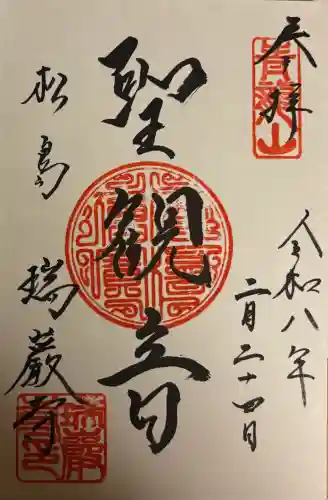 奉拝
令和八年
二月二十四日
聖観音
松島 瑞巌寺